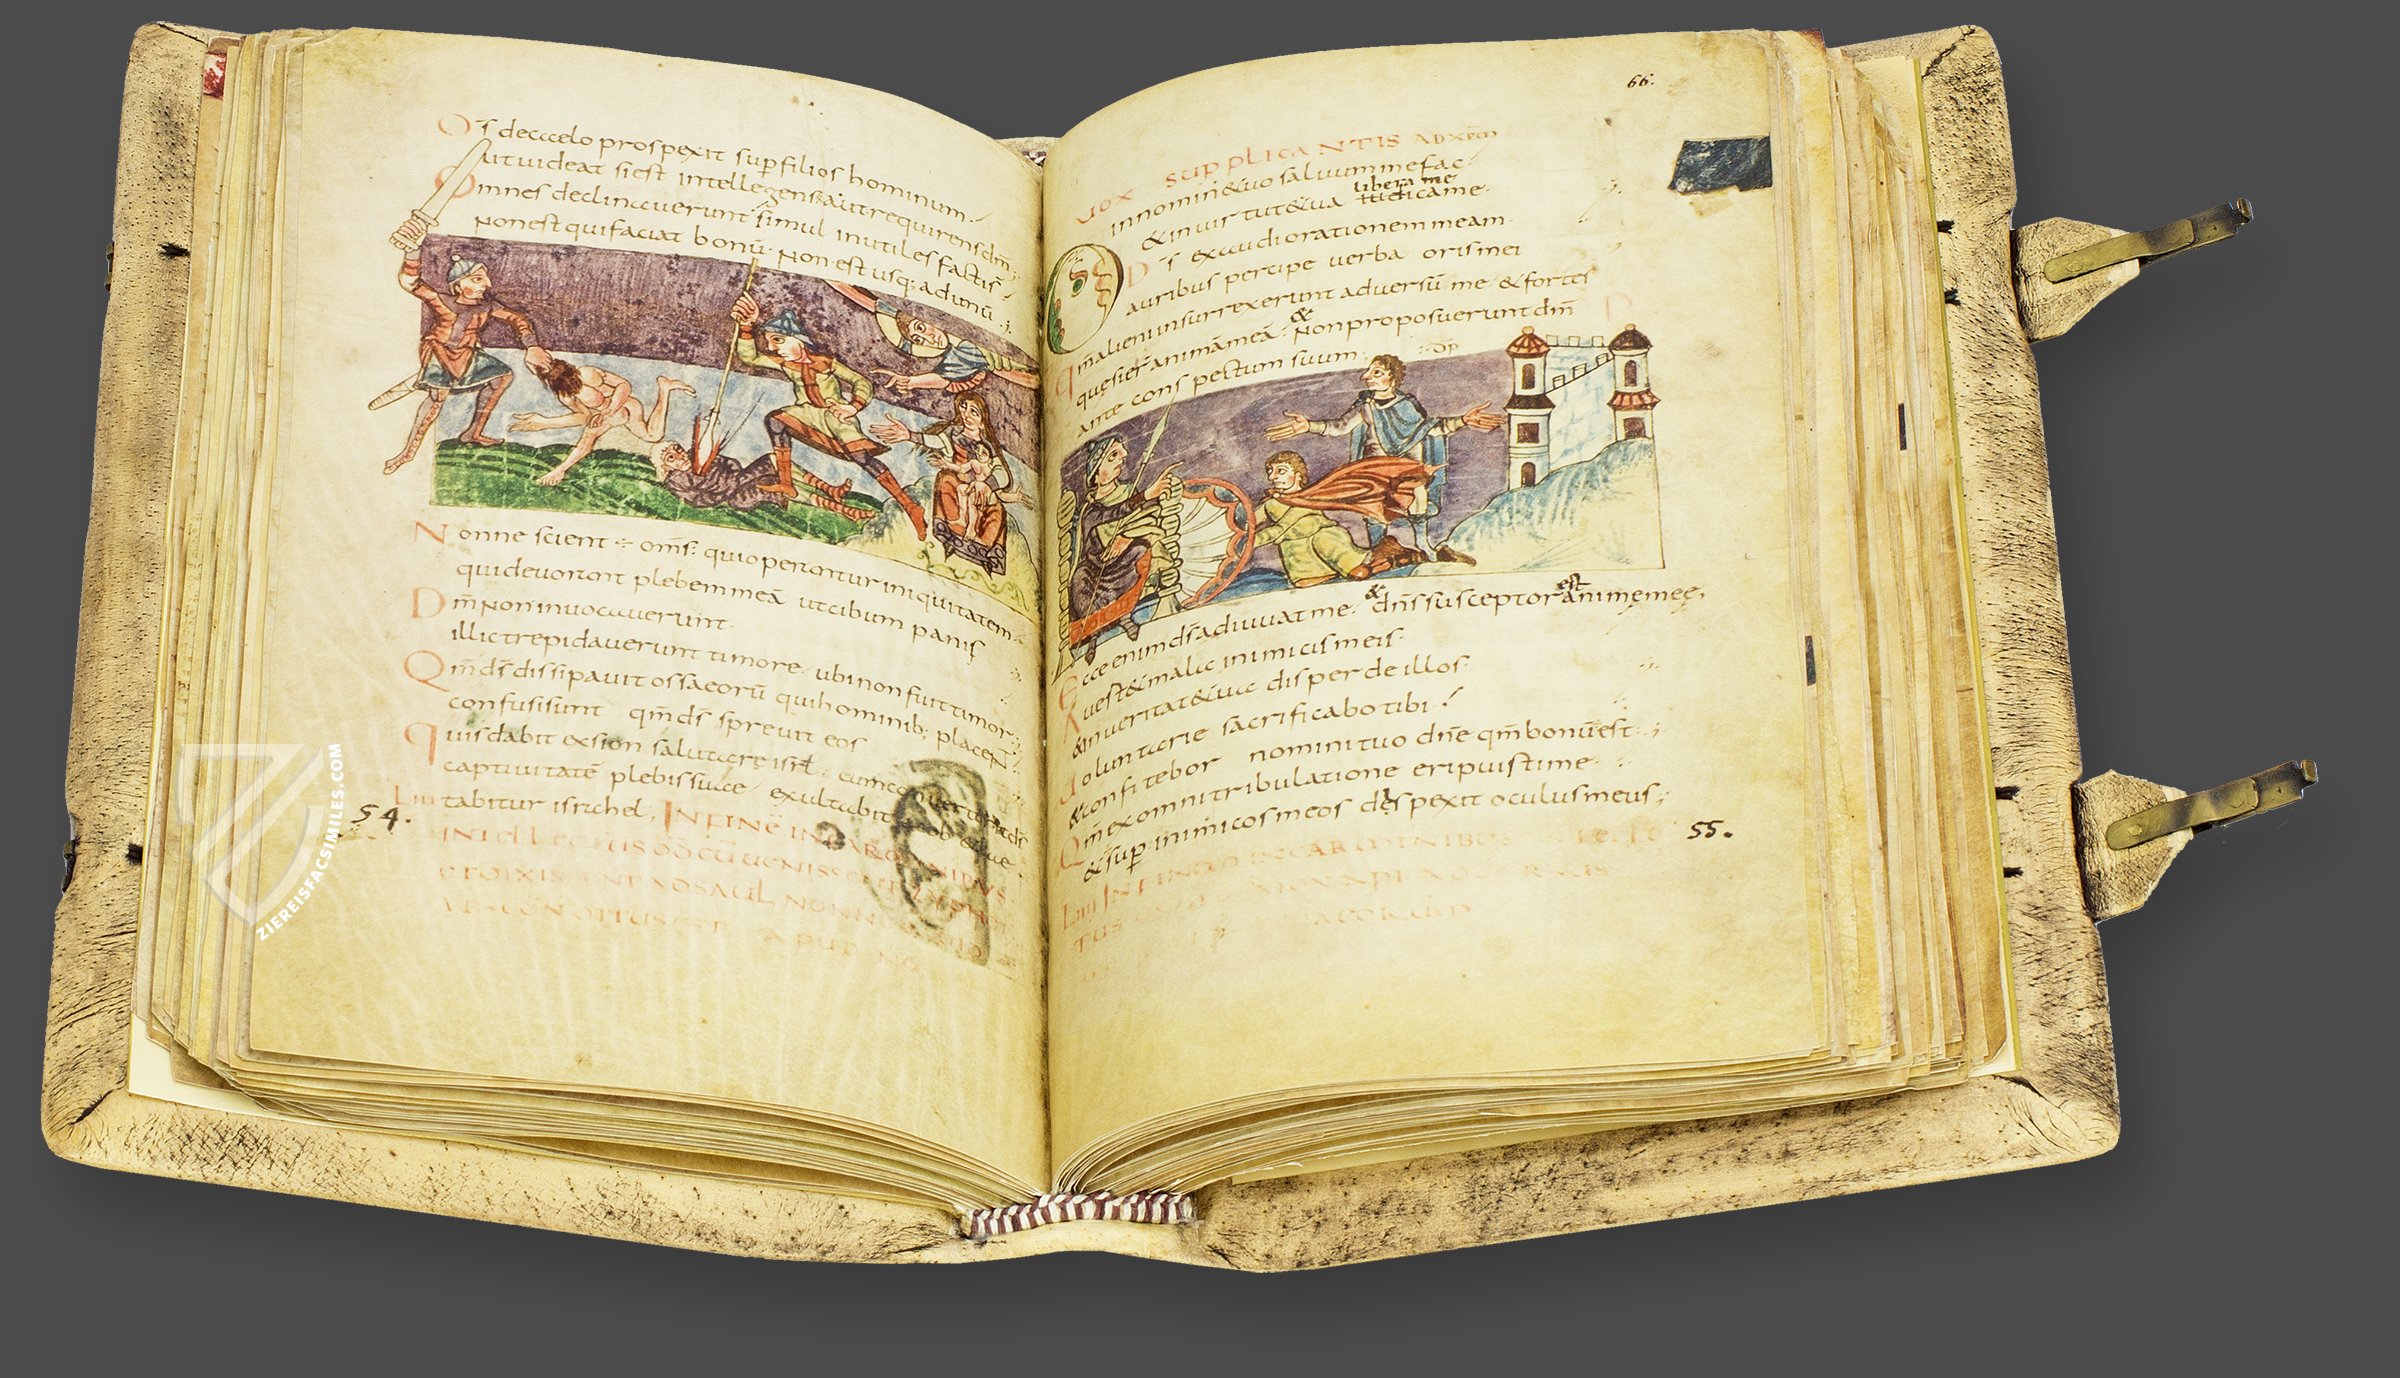 Ds decaelo prospexit sup filios hominum
ut uideat siest intellegens aut requirens dm̄
Omnes declinauerunt simul inutiles facti s̄
Non est qui faciat bonū. Non est usq; ad unū
Nonne scient om̄s qui operantur iniquitatem
qui deuorant plebem meā ut cibum panis
Dm̄ Non inuocauerunt.
illic trepidauerunt timore. ubi non fuit timor
Qm̄ ds̄ dissipauit ossa eorū qui hominib; placent
confusi sunt qm̄ ds̄ spreuit eos
Quis dabit ex sion salutare isrl. cum
captiuitatē plebis suae. exultabit
Liii tabitur israhel, IN FINĒ IN
INTELLECTUS
54.
66.
VOX SUPPLICANTIS AD XPM
In nomine tuo saluum me fac
libera me
& in uirtute tua iudica me.
Ds exaudi orationem meam
auribus percipe uerba oris mei
Qm̄ alieni insurrexerunt aduersū me & fortes
&
quesier̄ animā meā. Non proposuerunt dm̄
ante conspectum suum.
& est
Ecce enim ds̄ adiuuat me. dn̄s susceptor animę meę,
Auerte mala inimicis meis.
& in ueritate tua disperde illos
Uoluntarie sacrificabo tibi.
& confitebor nomini tuo dn̄e qm̄ bonū est
Qm̄ ex omni tribulatione eripuisti me
& sup inimicos meos despexit oculus meus;
55.
Liiii IN FINEM IN CARMINIBUS
ZIEREISFACSIMILES.COM